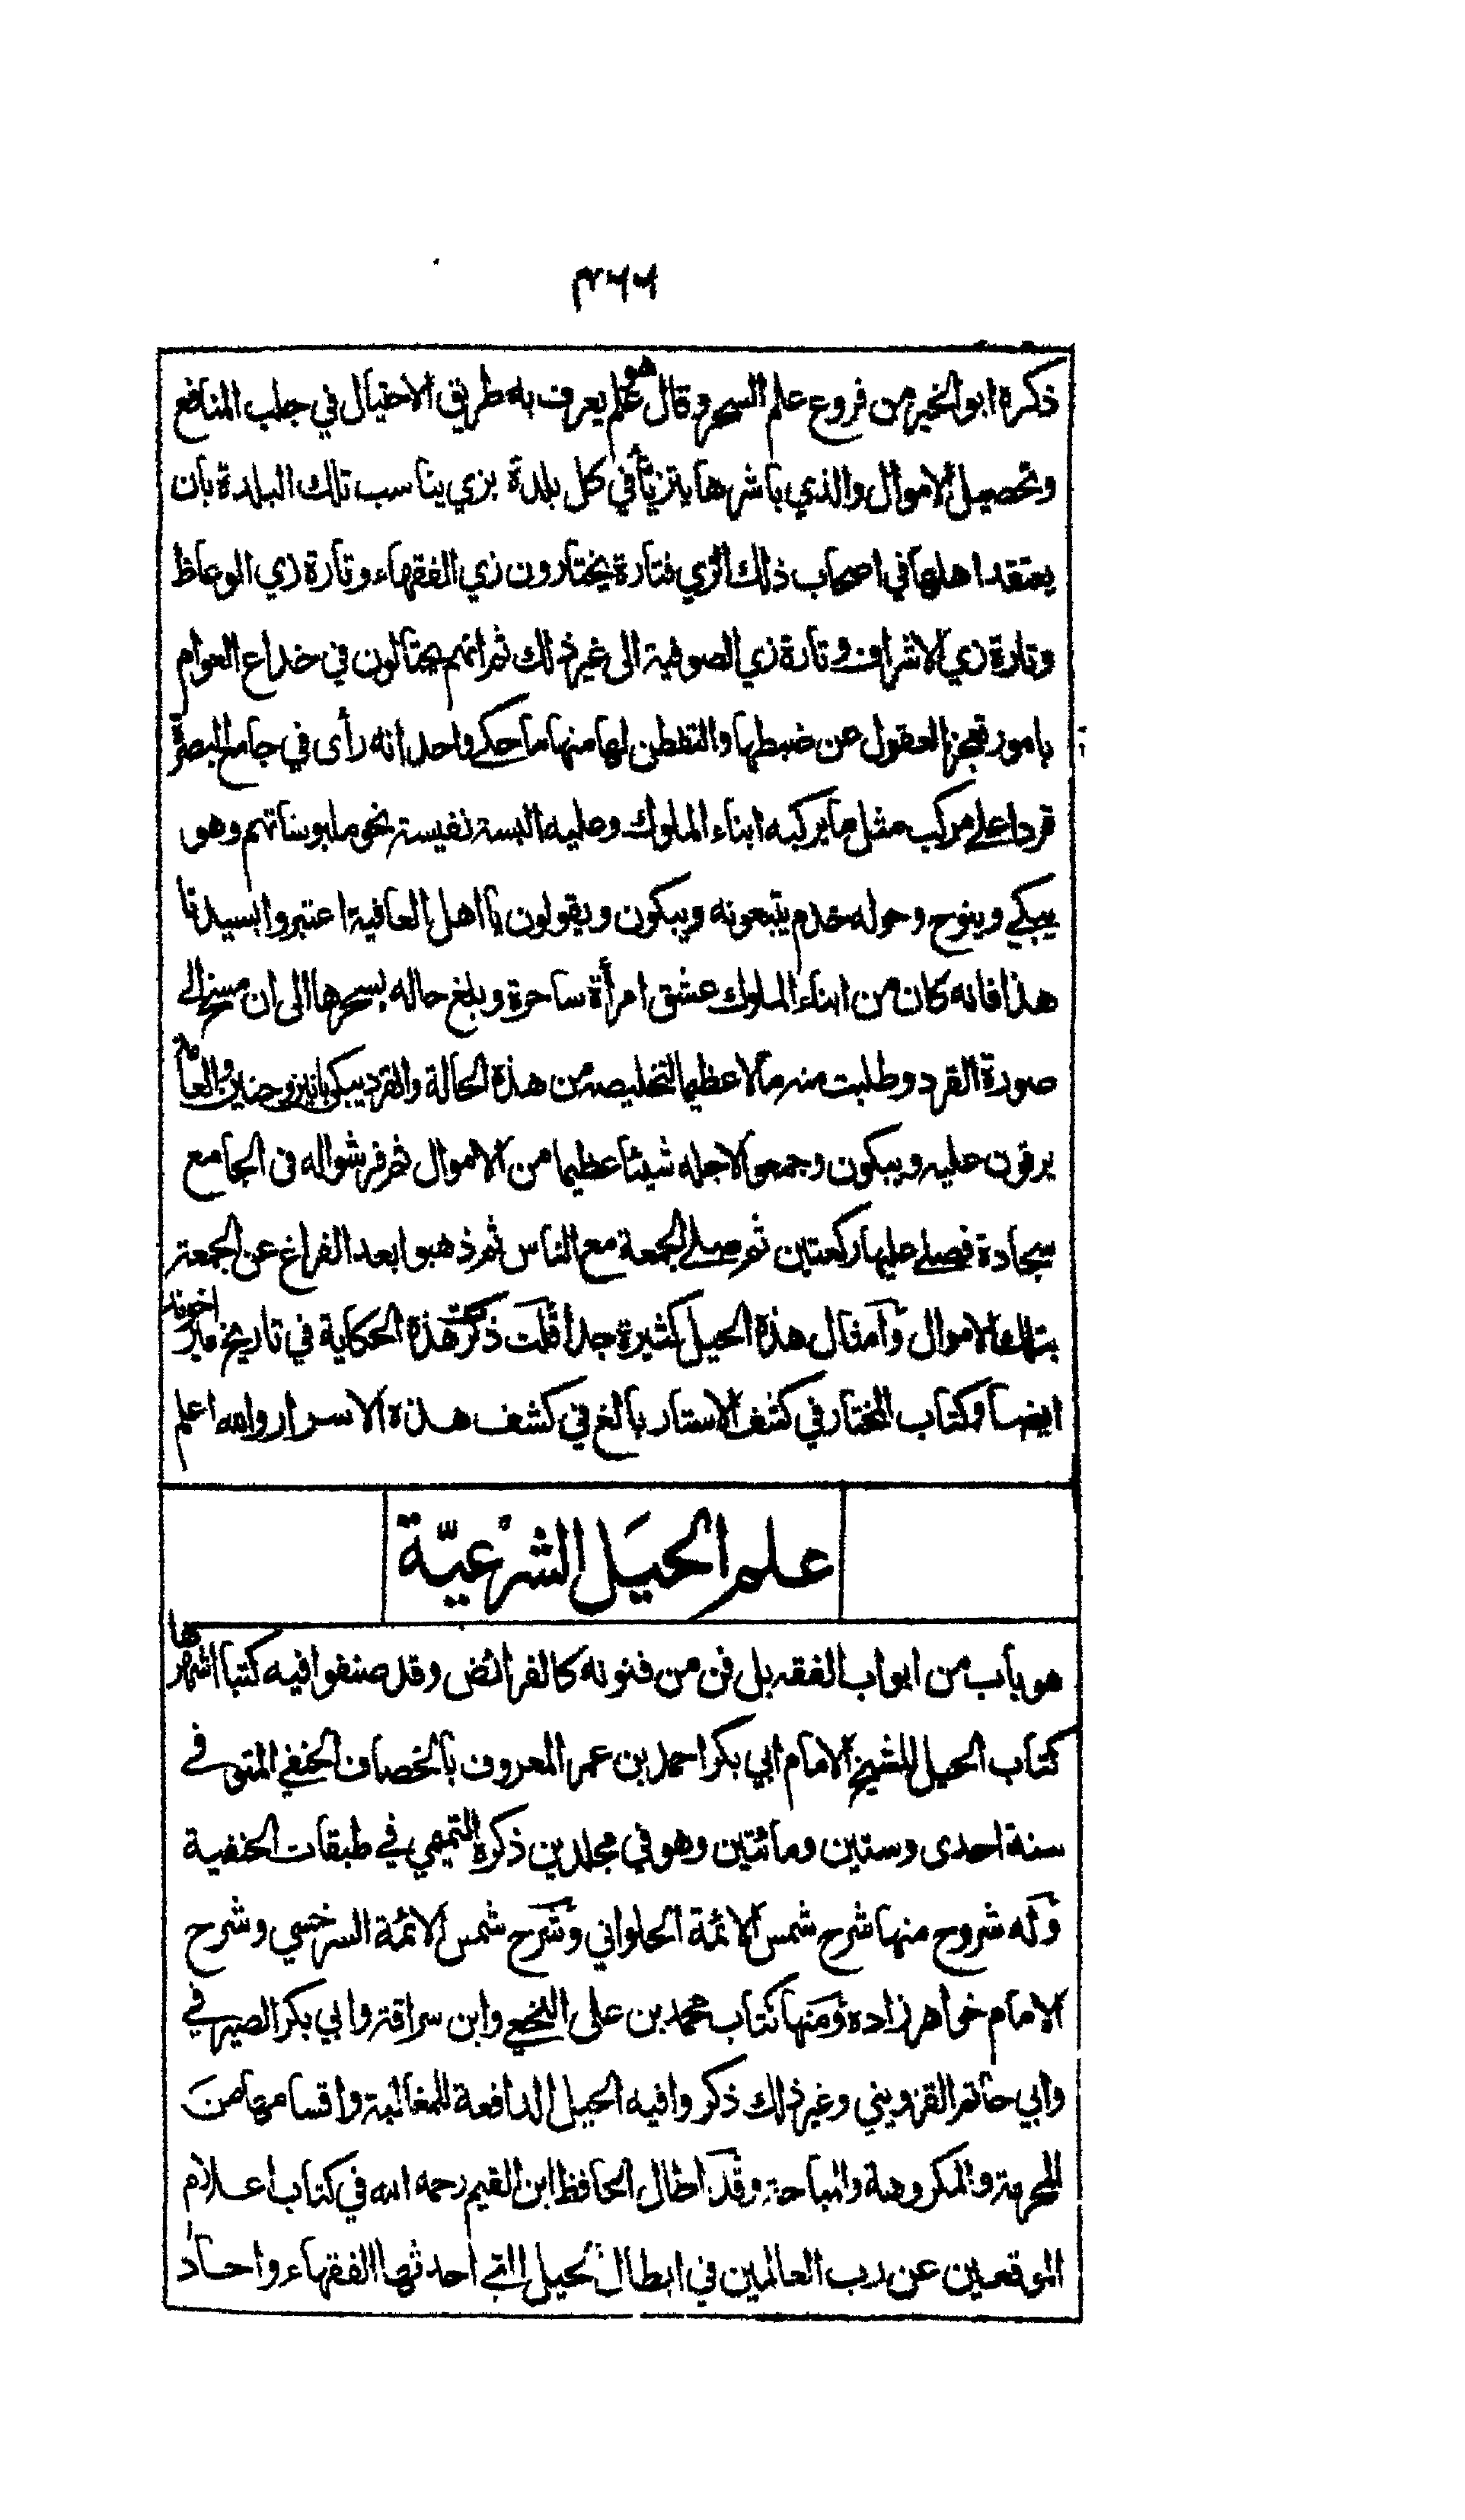 ٤٦٦
ذكره ابو الخير من فروع علم السحر وقال هو علم يعرف به طريق الاحتيال في جلب المنافع
وتحصيل الاموال والذي باشرها يتزيأ في كل بلدة بزي يناسب تلك البلدة بان
يعتقد اهلها في اصحاب ذلك الزي فتارة يختارون زي الفقهاء وتارة زي الوعاظ
وتارة زي الاشراف وتارة زي الصوفية الى غير ذلك ثم انهم يحتالون في خداع العوام
بامور تعجز العقول عن ضبطها والتفطن لها منها ما حكى واحد انه رأى في جامع البصرة
قردا على مركب مثل ما يركبه ابناء الملوك وعليه البسة نفيسة نحو ملبوساتهم وهو
يبكي وينوح وحوله خدم يتبعونه ويبكون ويقولون يا اهل العافية اعتبروا بسيدنا
هذا فانه كان من ابناء الملوك عشق امرأة ساحرة وبلغ حاله بسحرها الى ان مسخ الى
صورة القرد وطلبت منه مالا عظيما لتخليصه من هذه الحالة والقرد يبكي بانين وحنين والعامة
يرقون عليه ويبكون وجمعوا لاجله شيئا عظيما من الاموال ثم فرشوا له في الجامع
سجادة فصلى عليها ركعتين ثم صلى الجمعة مع الناس ثم ذهبوا بعد الفراغ عن الجمعة
بتلك الاموال وامثال هذه الحيل كثيرة جدا قلت ذكرت هذه الحكاية في تاريخ مير اخوند
ايضا وكتاب المختار في كشف الاستار بالغ في كشف هذه الاسرار والله اعلم
علم الحيَل الشرْعيّة
هو باب من ابواب الفقه بل فن من فنونه كالفرائض وقد صنفوا فيه كتبا اشهرها
كتاب الحيل للشيخ الامام ابي بكر احمد بن عمر المعروف بالخصاف الحنفي المتوفى
سنة احدى وستين ومائتين وهو في مجلدين ذكره التميمي في طبقات الحنفية
وله شروح منها شرح شمس الائمة الحلواني وشرح شمس الائمة السرخسي وشرح
الامام خواهر زاده ومنها كتاب محمد بن علي النخعي وابن سراقة وابي بكر الصيرفي
وابي حاتم القزويني وغير ذلك ذكروا فيه الحيل الدافعة للمغالبة واقسامها من
المحرمة والمكروهة والمباحة وقد اطال الحافظ ابن القيم رحمه الله في كتاب اعلام
الموقعين عن رب العالمين في ابطال الحيل التي احدثها الفقهاء واحاد